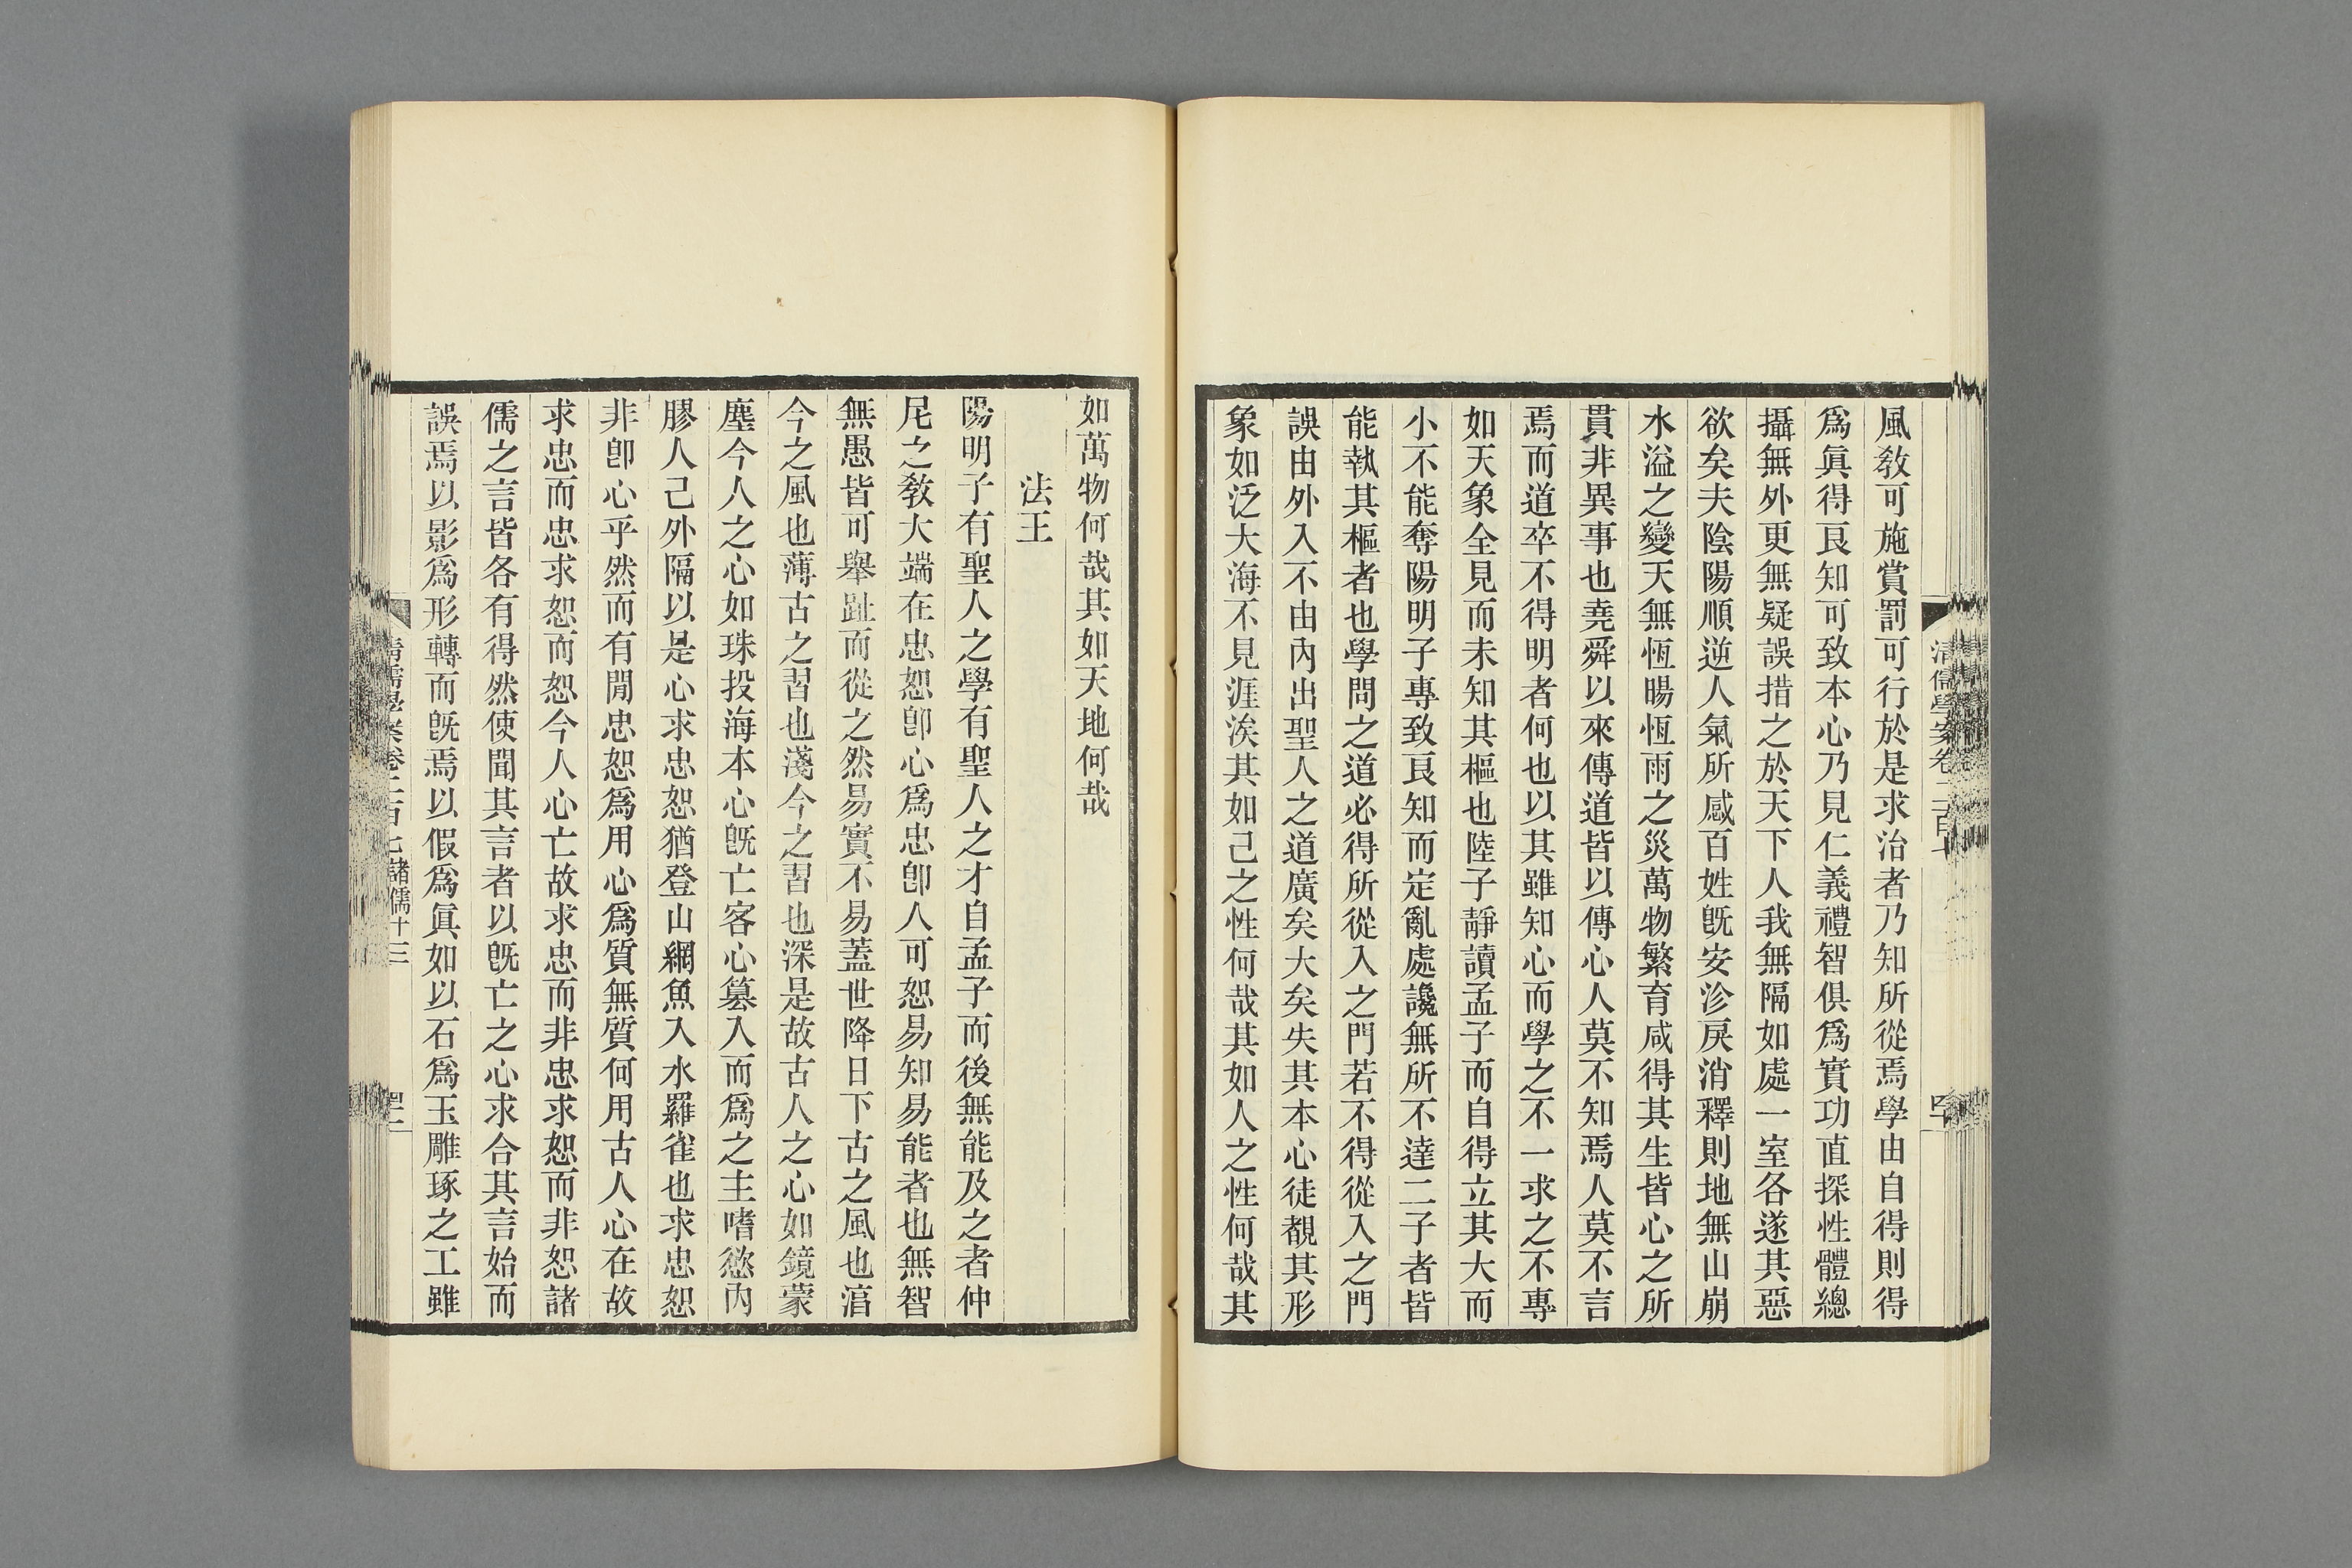 清儒學案卷二百七
四十
風敎可施賞罰可行於是求治者乃知所從焉學由自得則得
爲眞得良知可致本心乃見仁義禮智俱爲實功直探性體總
攝無外更無疑誤措之於天下人我無隔如處一室各遂其惡
欲矣夫陰陽順逆人氣所感百姓旣安沴戾消釋則地無山崩
水溢之變天無恆暘恆雨之災萬物繁育咸得其生皆心之所
貫非異事也堯舜以來傳道皆以傳心人莫不知焉人莫不言
焉而道卒不得明者何也以其雖知心而學之不一求之不專
如天象全見而未知其樞也陸子靜讀孟子而自得立其大而
小不能奪陽明子專致良知而定亂處讒無所不達二子者皆
能執其樞者也學問之道必得所從入之門若不得從入之門
誤由外入不由內出聖人之道廣矣大矣失其本心徒覩其形
象如泛大海不見涯涘其如己之性何哉其如人之性何哉其
如萬物何哉其如天地何哉
法王
陽明子有聖人之學有聖人之才自孟子而後無能及之者仲
尼之敎大端在忠恕卽心爲忠卽人可恕易知易能者也無智
無愚皆可舉趾而從之然易實不易蓋世降日下古之風也淳
今之風也薄古之習也淺今之習也深是故古人之心如鏡蒙
塵今人之心如珠投海本心旣亡客心篡入而爲之主嗜慾內
膠人己外隔以是心求忠恕猶登山網魚入水羅雀也求忠恕
非卽心乎然而有閒忠恕爲用心爲質無質何用古人心在故
求忠而忠求恕而恕今人心亡故求忠而非忠求恕而非恕諸
儒之言皆各有得然使聞其言者以旣亡之心求合其言始而
誤焉以影爲形轉而旣焉以假爲眞如以石爲玉雕琢之工雖
清儒學案卷二百七諸儒十三
四一